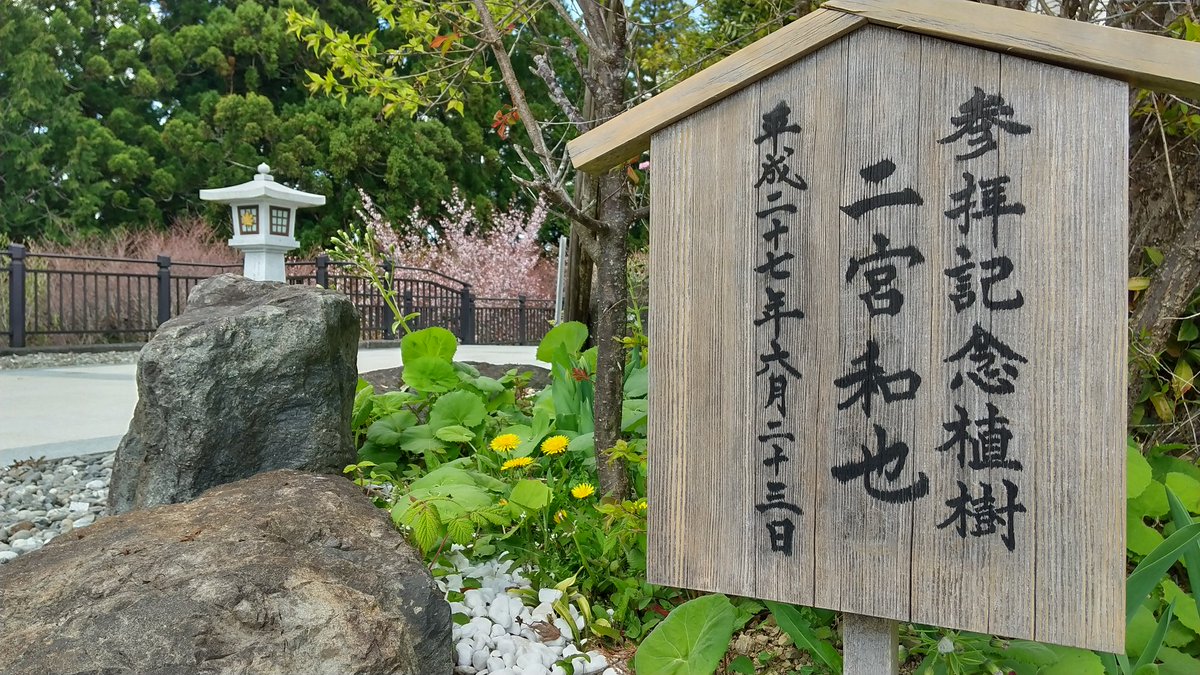 参拝記念植樹
二宮和也
平成二十七年六月二十三日